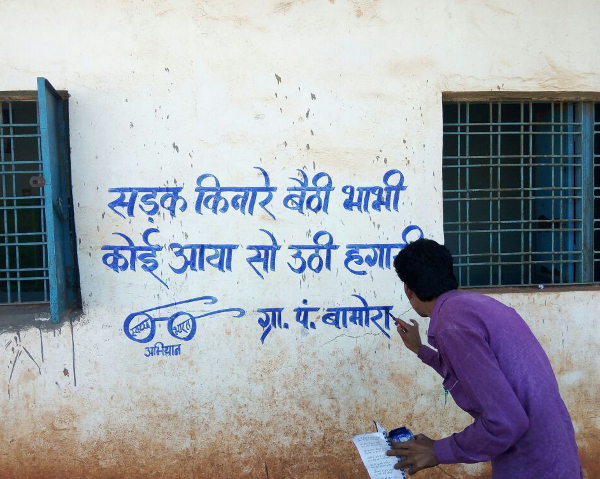 सड़क किनारे बैठी भाभी
कोई आया सो उठी
स्वच्छ भारत
अभियान
ग्रा. पं. बामोरा